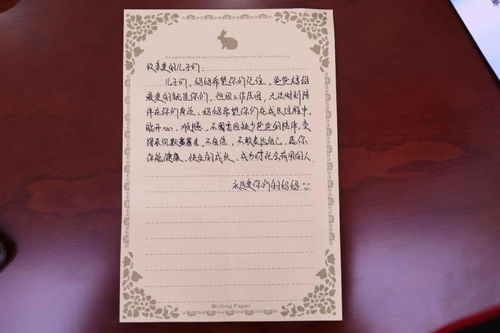 致亲爱的儿子们:
儿子们, 妈妈希望你们记住, 爸爸妈妈
最爱的就是你们, 但因工作原因, 无法时刻陪
伴在你们身边, 妈妈希望你们在成长过程中,
能开心、顺, 不因缺少爸爸的陪伴, 变
得, 不自信, 不敢表达自己, 愿你
你能健康、快乐的成长, 成为对社会有用的人
永远爱你们的妈妈
Writing Paper